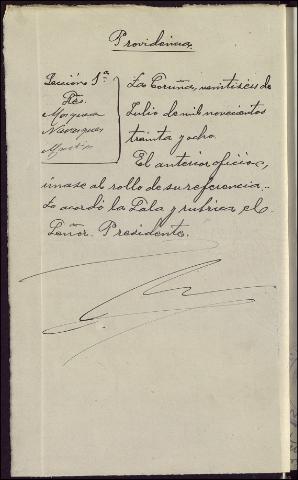 Providencia.
Sección 1ª
Sres.
La Coruña, veintiseis de
Julio de mil novecientos
treinta y ocho.
El anterior oficio,
únase al rollo de su referencia.-
Lo acordó la Sala y rubrica el
Señor Presidente.